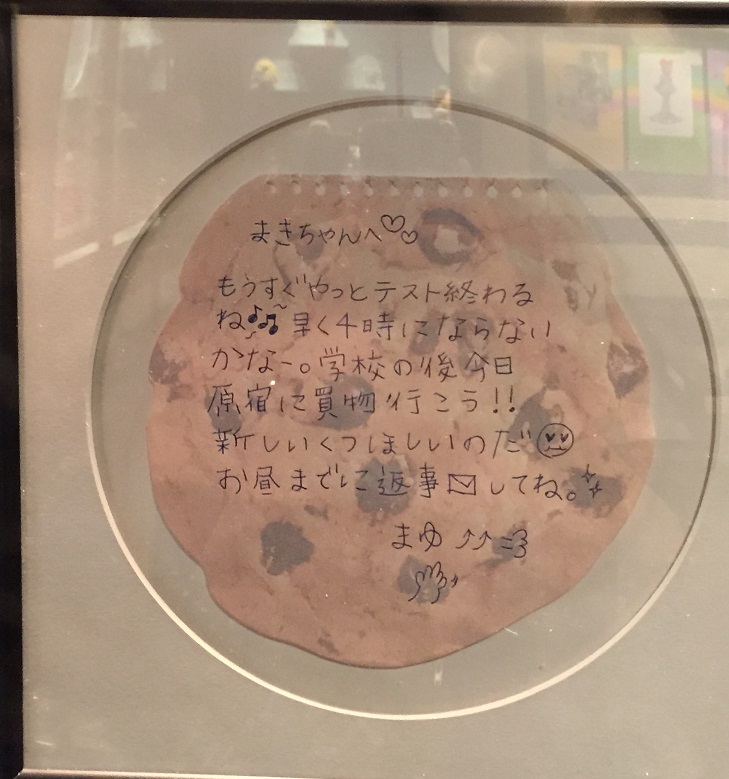 まきちゃんへ♡♡
もうすぐやっとテスト終わる
ね♪♫~早く4時にならない
かなー。学校の後今日
原宿に買物行こう!!
新しいくつほしいのだ😍
お昼までに返事✉してね。
まゆ ↑↑